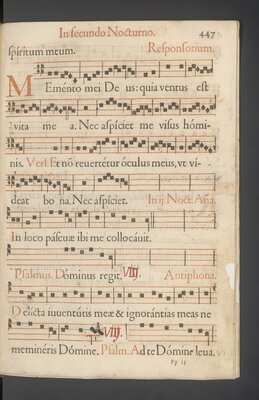 In secundo Nocturno. 447
spiritum meum. Responsorium.
MEmento mei De us: quia ventus est
vita me a. Nec aspíciet me visus hómi-
nis. Vers. Et nō revertétur óculus meus, ut ví-
deat bo na. Nec aspíciet. In ij Noct. Aña.
In loco páscuæ ibi me collocávit.
Psalmus. Dóminus regit. VIIJ. Antiphona.
Delícta iuventútis meæ & ignorántias meas ne
memíneris Dómine. VIIJ. Psalm. Ad te Dómine leva.